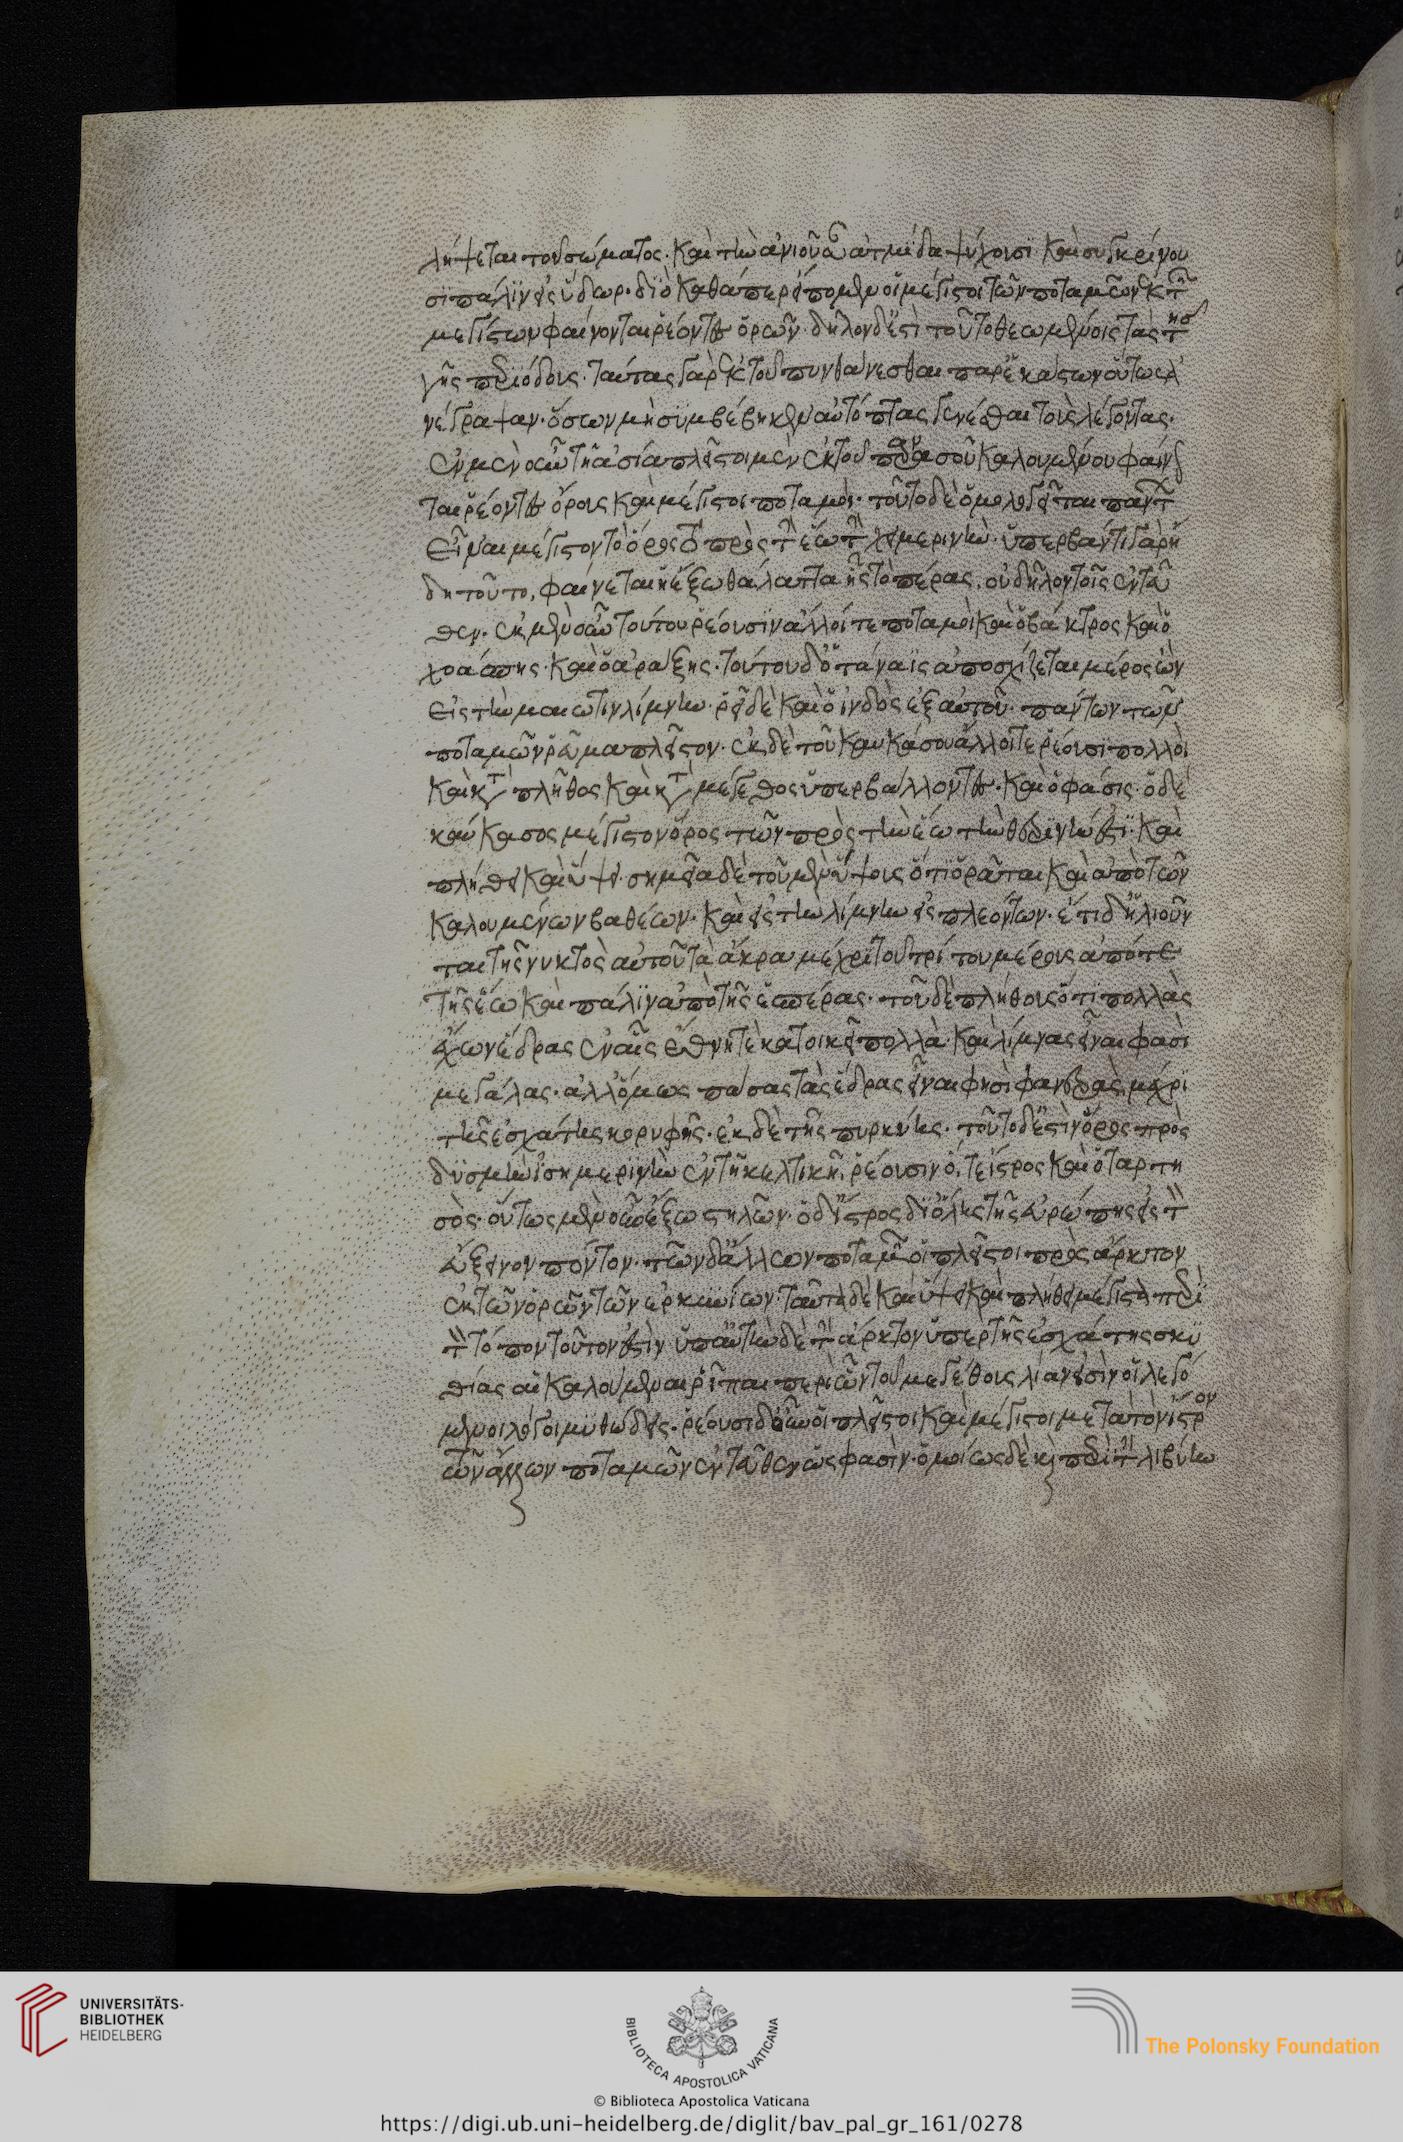 λήψεται τοῦ σώματος. καὶ τὴν ἀνιοῦσαν ἀτμίδα ψύχουσι καὶ συγκρίνου
σι πάλιν εἰς ὕδωρ. διὸ καθάπερ εἴπομεν οἱ μέγιστοι τῶν ποταμῶν ἐκ τῶν
μεγίστων φαίνονται ῥέοντες ὀρῶν. δῆλον δ' ἐστὶ τοῦτο θεωμένοις τὰς τῆς
γῆς περιόδους. ταύτας γὰρ ἐκ τοῦ πυνθάνεσθαι παρ' ἑκάστων οὕτως ἀ
νέγραψαν. ὅσων μὴ συμβέβηκεν αὐτόπτας γενέσθαι τοὺς λέγοντας.
ἐν μὲν οὖν τῇ ἀσίᾳ πλεῖστοι μὲν ἐκ τοῦ παρνασοῦ καλουμένου φαίνον
ται ῥέοντες ὄρους καὶ μέγιστοι ποταμοί. τοῦτο δὲ ὁμολογεῖται πάντων
εἶναι μέγιστον τὸ ὄρος τῶν πρὸς τὴν ἕω τὴν χειμερινήν. ὑπερβάντι γὰρ ἤ
δη τοῦτο, φαίνεται ἡ ἔξω θάλαττα ἧς τὸ πέρας οὐ δῆλον τοῖς ἐνταῦ
θεν. ἐκ μὲν οὖν τούτου ῥέουσιν ἄλλοι τε ποταμοὶ καὶ ὁ βάκτρος καὶ ὁ
χοάσπης. καὶ ὁ ἀράξης. τούτου δ' ὁ τάναϊς ἀποσχίζεται μέρος ὢν
εἰς τὴν μαιῶτιν λίμνην. ῥεῖ δὲ καὶ ὁ ἰνδὸς ἐξ αὐτοῦ. πάντων τῶν
ποταμῶν ῥεῦμα πλεῖστον. ἐκ δὲ τοῦ καυκάσου ἄλλοι τε ῥέουσι πολλοὶ
καὶ κατὰ πλῆθος καὶ κατὰ μέγεθος ὑπερβάλλοντες. καὶ ὁ φάσις. ὁ δὲ
καύκασος μέγιστον ὄρος τῶν πρὸς τὴν ἕω τὴν θερινήν ἐστι. καὶ
πλήθει καὶ ὕψει. σημεῖα δὲ τοῦ μὲν ὕψους ὅτι ὁρᾶται καὶ ἀπὸ τῶν
καλουμένων βαθέων. καὶ εἰς τὴν λίμνην εἰσπλεόντων. ἔτι δ' ἡλιοῦν
ται τῆς νυκτὸς αὐτοῦ τὰ ἄκρα μέχρι τοῦ τρίτου μέρους ἀπό τε
τῆς ἕω καὶ πάλιν ἀπὸ τῆς ἑσπέρας. τοῦ δὲ πλήθους ὅτι πολλὰς
ἔχων ἕδρας ἐν αἷς ἔθνη τε κατοικεῖ πολλὰ καὶ λίμνας εἶναι φασὶ
μεγάλας. ἀλλ' ὅμως πάσας τὰς ἕδρας εἶναι φησὶ φανερὰς μέχρι
τῆς ἐσχάτης κορυφῆς. ἐκ δὲ τῆς πυρήνης. τοῦτο δ' ἐστὶν ὄρος πρὸς
δυσμὴν ἰσημερινὴν ἐν τῇ κελτικῇ, ῥέουσιν ὅ, τε ἴστρος καὶ ὁ ταρτη
σὸς. οὗτος μὲν οὖν ἔξω στηλῶν. ὁ δ' ἴστρος δι' ὅλης τῆς εὐρώπης εἰς τὸν
εὔξεινον πόντον. τῶν δ' ἄλλων ποταμῶν οἱ πλεῖστοι πρὸς ἄρκτον
ἐκ τῶν ὀρῶν τῶν ἀρκυνίων. ταῦτα δὲ καὶ ὕψει καὶ πλήθει μέγιστα περὶ
τὸν τόπον τοῦτον ἐστὶν ὑπ' αὐτὴν δὲ τὴν ἄρκτον ὑπὲρ τῆς ἐσχάτης σκυ
θίας αἱ καλούμεναι ῥῖπαι περὶ ὧν τοῦ μεγέθους λίαν εἰσὶν οἱ λεγό
μενοι λόγοι μυθώδεις. ῥέουσι δ' οὖν οἱ πλεῖστοι καὶ μέγιστοι μετὰ τὸν ἴστρον
τῶν ἄλλων ποταμῶν ἐνταῦθεν ὥς φασιν. ὁμοίως δὲ καὶ περὶ τὴν λιβύην
UNIVERSITÄTS-
BIBLIOTHEK
HEIDELBERG
BIBLIOTECA APOSTOLICA VATICANA
The Polonsky Foundation
© Biblioteca Apostolica Vaticana
https://digi.ub.uni-heidelberg.de/diglit/bav_pal_gr_161/0278